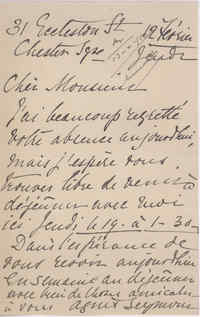 31 Eccleston St
Chester Sqre
12 Février
Cher Monsieur
J'ai beaucoup regretté
votre absence aujourd'hui,
mais j'espère vous
trouver libre de venir
déjeuner avec moi
ici Jeudi le 19 - à 1 - 30 -
Dans l'espérance de
vous revoir aujourd'hui
en semaine au déjeuner
avec
à vous Seymour